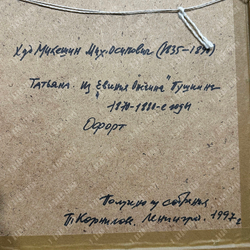 Худ Микешин Мих. Осипович (1835-1896)
Татьяна. Из "Евгения Онегина" Пушкина
1870-1880-е годы
Офорт
Получено из собрания
П. Корнилов. Ленингр. 1997г.